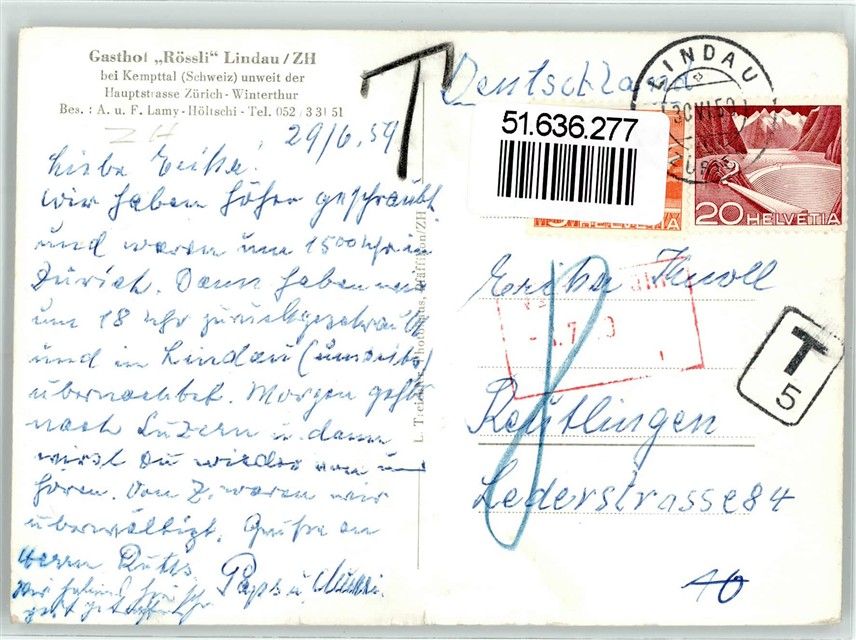 Gasthof „Rössli“ Lindau / ZH
bei Kempttal (Schweiz) unweit der
Hauptstrasse Zürich - Winterthur
Bes. : A. u. F. Lamy - Höltschi - Tel. 052 / 3 31 51
ZH
29/6.59
Liebe Erika.
Wir haben höher geschraubt
und waren um 15⁰⁰ Uhr in
Zürich. Dann haben wir
um 18 Uhr zurückgeschraubt
und in Lindau (umseits)
übernachtet. Morgen geht's
nach Luzern u. dann
wirst Du wieder von uns
hören. Von Z. waren wir
überwältigt. Grüße an
Herrn
Paps u. Mutti.
T
Deutschland
LINDAU
51.636.277
20 HELVETIA
Erika Knoll
T
5
8
Reutlingen
Lederstrasse 84
10